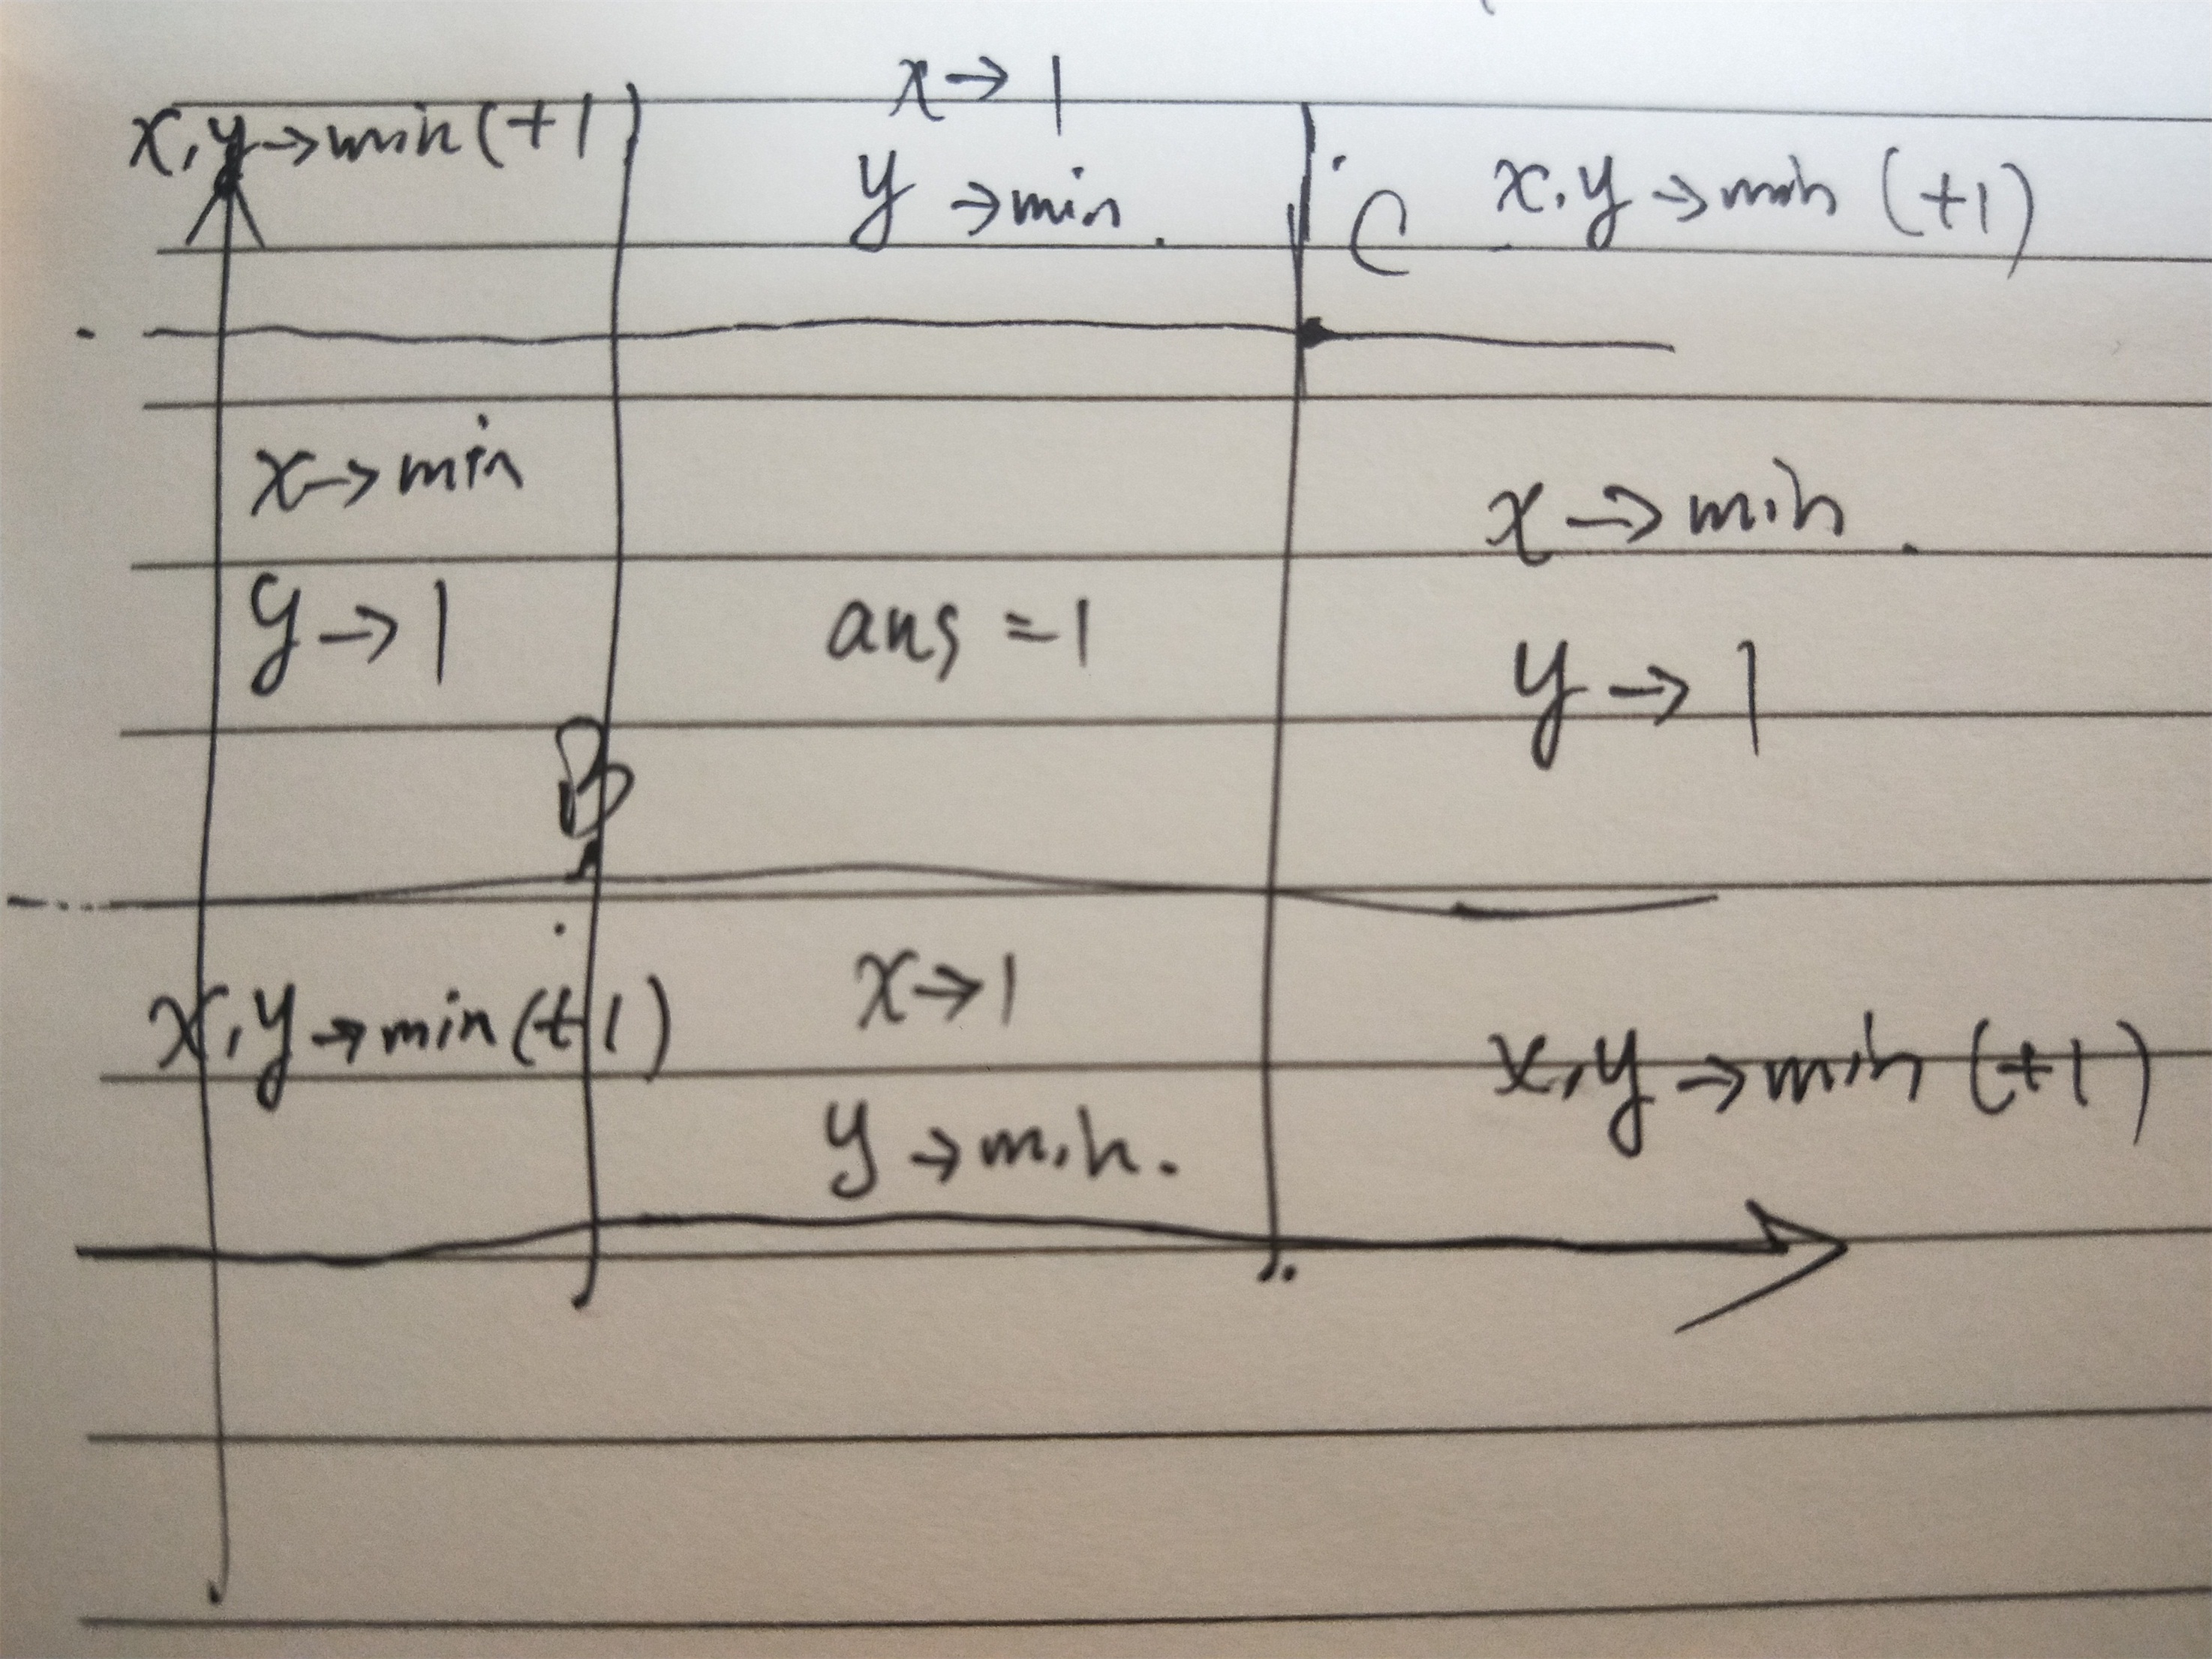 x,y→min(+1)
x→1
y→min.
C
x,y→min (+1)
x→min
y→1
ans=1
x→min.
y→1
B
x,y→min(+1)
x→1
y→min.
x,y→min (+1)